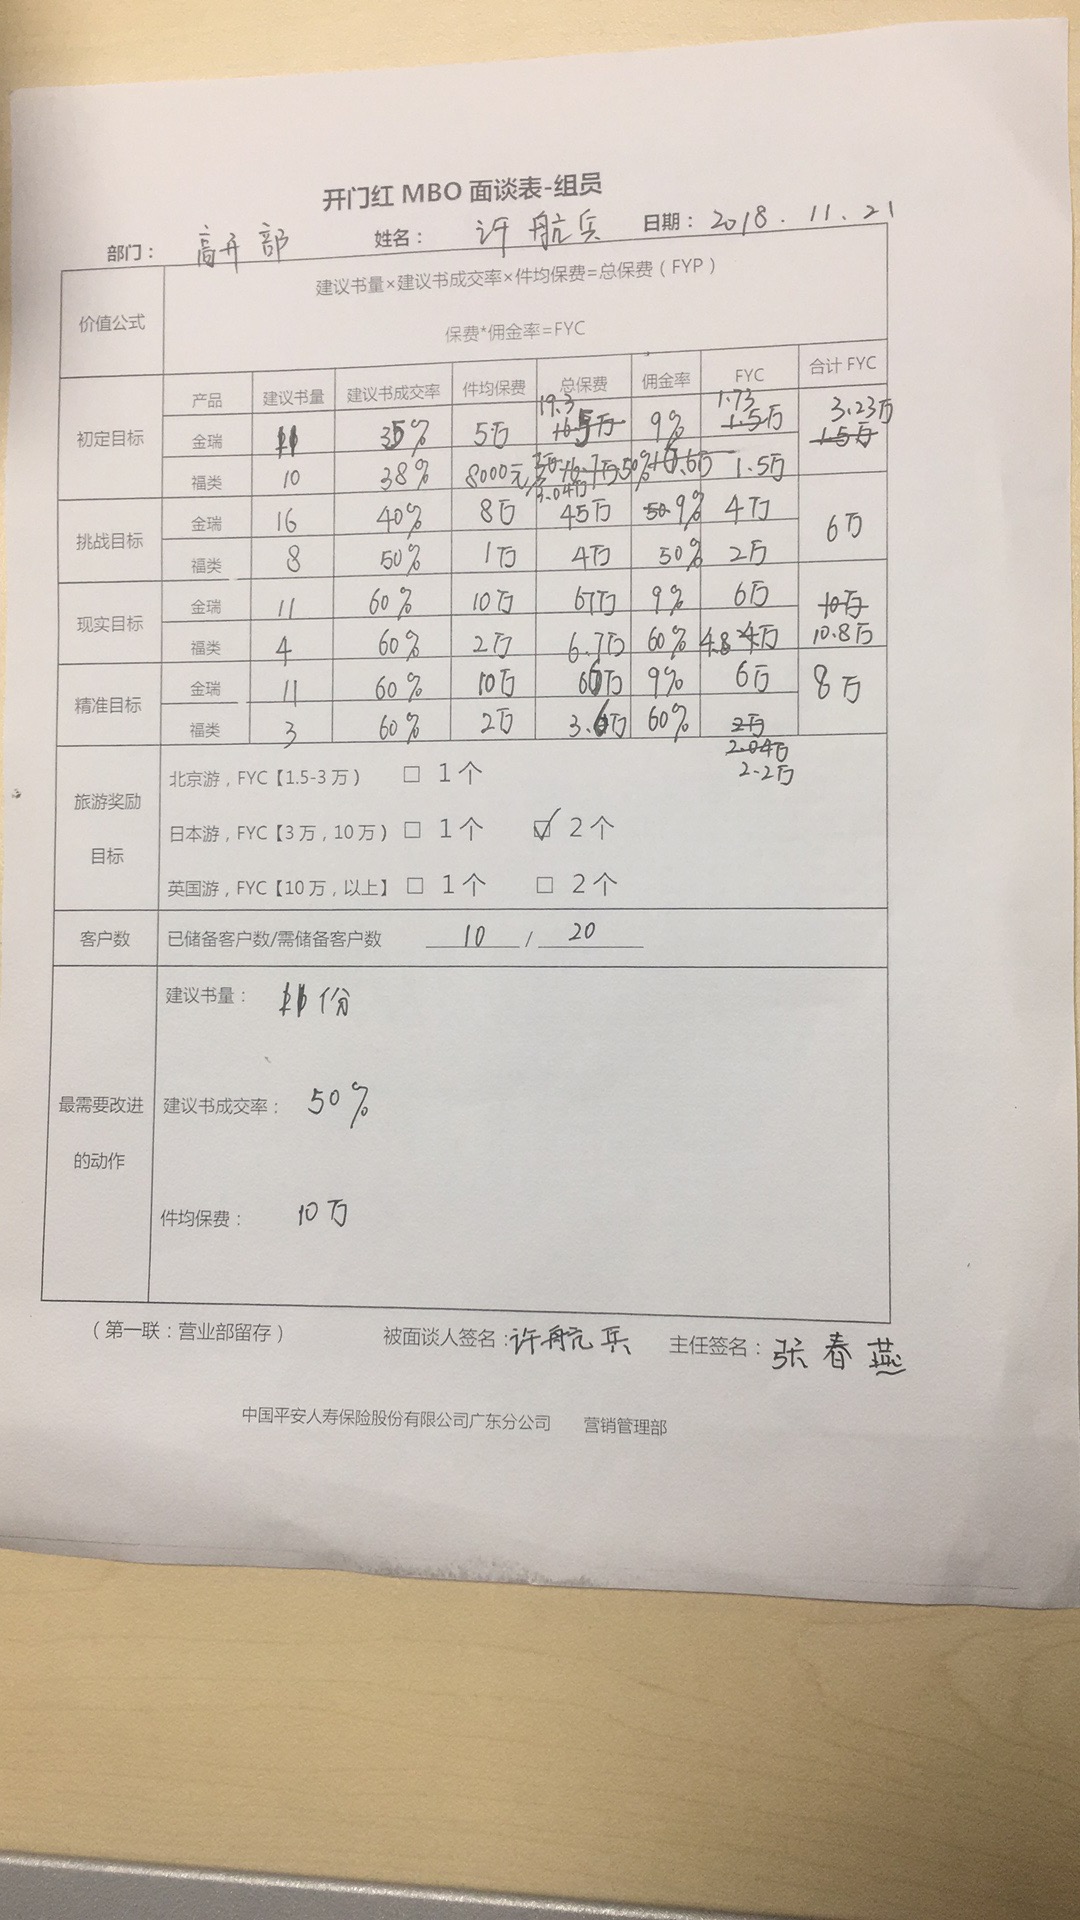 开门红 MBO 面谈表-组员
部门： 高开部 姓名： 许航兵 日期： 2018.11.21
价值公式
建议书量×建议书成交率×件均保费=总保费（FYP）
保费*佣金率=FYC
产品 建议书量 建议书成交率 件均保费 总保费 佣金率 FYC 合计 FYC
初定目标
金瑞 11 35% 5万 19.3 9% 1.73 1.5万 3.23万 1.5万
福类 10 38% 8000元 3.04万 50% 1.5万
挑战目标
金瑞 16 40% 8万 45万 50 9% 4万 6万
福类 8 50% 1万 4万 50% 2万
现实目标
金瑞 11 60% 10万 67万 9% 6万 10万
福类 4 60% 2万 6.7万 60% 4.8 4万 10.8万
精准目标
金瑞 11 60% 10万 66万 9% 6万 8万
福类 3 60% 2万 3.6万 60% 2万
2.04万
2.2万
旅游奖励
目标
北京游，FYC【1.5-3万） □ 1个
日本游，FYC【3万，10万） □ 1个 ☑ 2个
英国游，FYC【10万，以上】 □ 1个 □ 2个
客户数 已储备客户数/需储备客户数 10 / 20
最需要改进
的动作
建议书量： 份
建议书成交率： 50%
件均保费： 10万
（第一联：营业部留存） 被面谈人签名：许航兵 主任签名：张春燕
中国平安人寿保险股份有限公司广东分公司 营销管理部